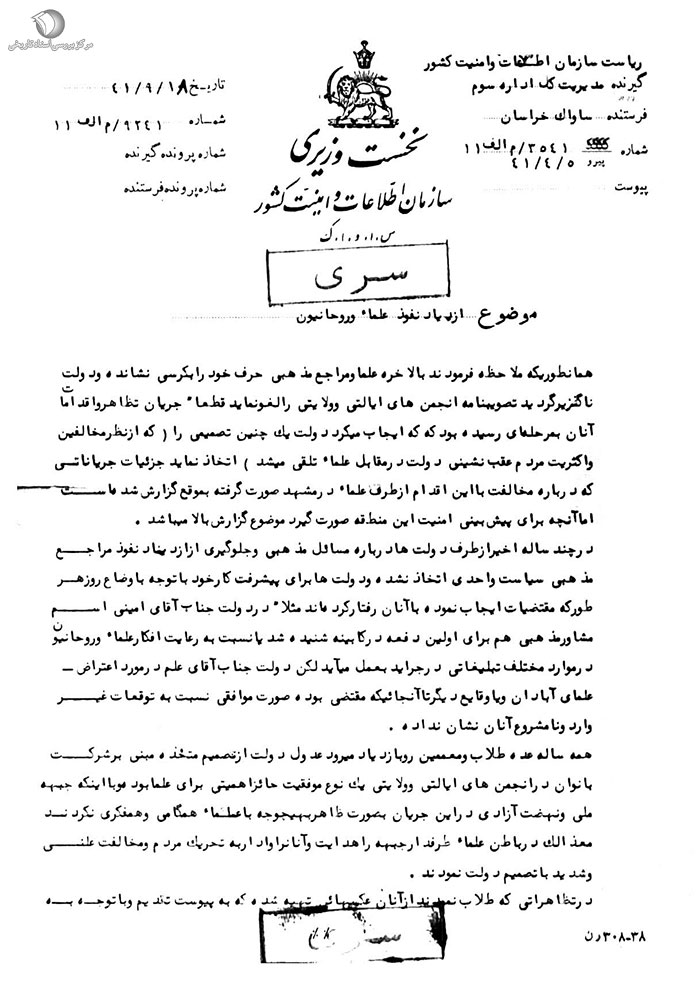 مرکز بررسی اسناد تاریخی
ریاست سازمان اطلاعات وامنیت کشور
گیرنده مدیریت کل اداره سوم
فرستنده ساواک خراسان
شماره ۳۵۴۱/م الف ۱۱
پیرو ۴۱/۴/۵
پیوست
نخست وزیری
سازمان اطلاعات و امنیت کشور
س.ا.و.ا.ک
تاریخ ۴۱/۹/۱۸
شماره ۹۲۴۱/م الف ۱۱
شماره پرونده گیرنده
شماره پرونده فرستنده
سری
موضوع ازدیاد نفوذ علماء وروحانیون
همانطوریکه ملاحظه فرمودند بالاخره علماومراجع مذهبی حرف خود رابکرسی نشانده ودولت
ناگزیرگردید تصویبنامه انجمن های ایالتی وولایتی رالغونماید قطعا" جریان تظاهرواقدامات
آنان بمرحله‌ای رسیده بود که که ایجاب میکرد دولت یک چنین تصمیمی را ( که ازنظرمخالفین
واکثریت مردم عقب نشینی دولت درمقابل علماء تلقی میشد ) اتخاذ نماید جزئیات جریاناتی
که درباره مخالفت بااین اقدام ازطرف علماء درمشهد صورت گرفته بموقع گزارش شده است
اماآنچه برای پیش بینی امنیت این منطقه صورت گیرد موضوع گزارش بالا میباشد .
درچند ساله اخیرازطرف دولت هادرباره مسائل مذهبی وجلوگیری ازازدیاد نفوذ مراجع
مذهبی سیاست واحدی اتخاذ نشده ودولت هابرای پیشرفت کارخود باتوجه باوضاع روزهر
طورکه مقتضیات ایجاب نموده باآنان رفتارکرده‌اند مثلا" دردولت جناب آقای امینی اسم
مشاورمذهبی هم برای اولین دفعه درکابینه شنیده شد یانسبت به رعایت افکارعلماء وروحانیون
درموارد مختلف تبلیغاتی درجراید بعمل میآید لکن دولت جناب آقای علم درمورد اعتراض ـ
علمای آبادان ویاوقایع دیگرتاآنجائیکه مقتضی بوده صورت موافقی نسبت به توقعات غیر
وارد ونامشروع آنان نشان نداده .
همه ساله عده طلاب ومعممین روبازدیاد میرود عدول دولت ازتصمیم متخذه مبنی برشرکت
بانوان درانجمن های ایالتی وولایتی یک نوع موفقیت حائزاهمیتی برای علمابود ه‌وبااینکه جبهه
ملی ونهضت آزادی دراین جریان بصورت ظاهربهیچوجه باعلماء همگامی وهمفکری نکردند
معذالک درباطن علماء طرفدارجبهه راهدایت وآنانراوادار به تحریک مردم ومخالفت علنی
وشدید باتصمیم دولت نمودند .
درتظاهراتی که طلاب نمودند ازآنان عکسهائی تهیه شده که به پیوست تقدیم وباتوجه به
سری
۳۰۸-۳۸ رن